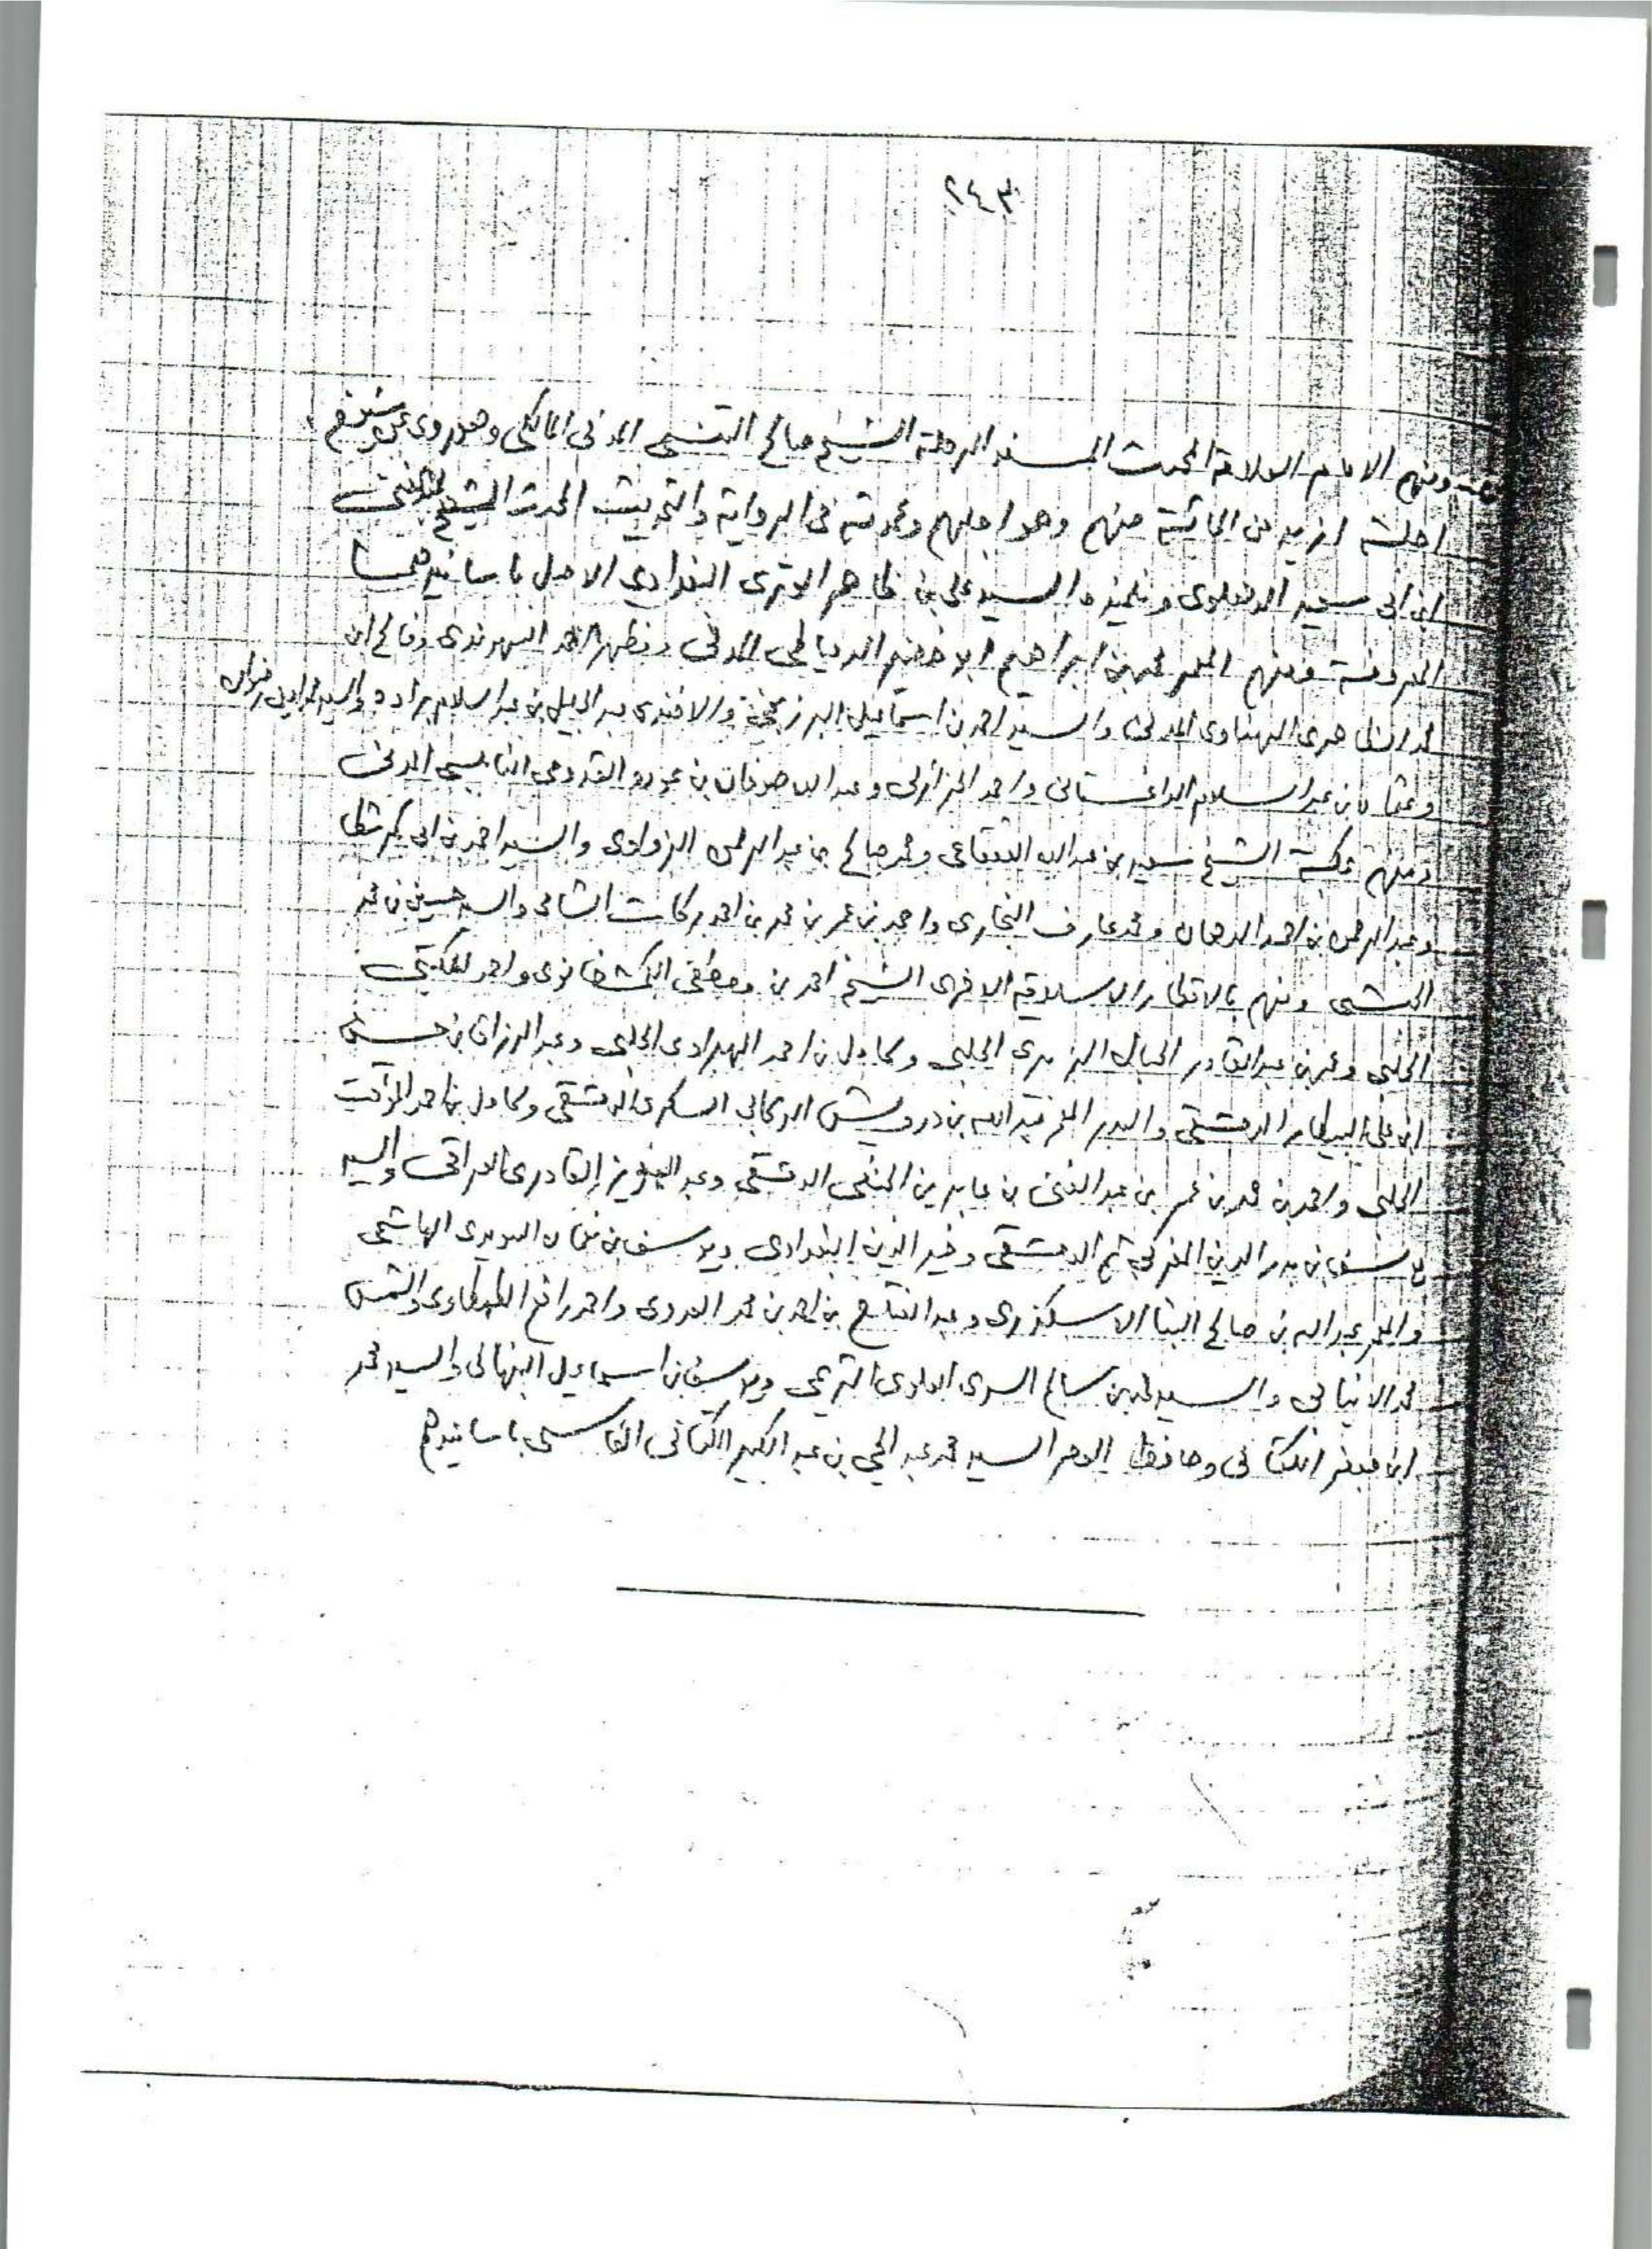 ٢٤٣
ومنهم الامام العلامة المحدث المسند الرحلة الشيخ صالح التنسى المدنى المالكى وهو روى عن
اجلة ازيد من المائة منهم وهو اجلهم وعمدته فى الرواية والتحديث المحدث الشيخ عبدالغنى
ابن ابى سعيد الدهلوى وتلميذه السيد على بن ظاهر الوترى البغدادى الاصل باسانيدهما
المعروفة ومنهم المعمر محمد بن ابراهيم ابو خضير الدمياطى المدنى ومظهر احمد السهرندى وفالح ابن
محمد الظاهرى المهناوى المدنى والسيد احمد بن اسماعيل البرزنجى والافندى عبد الجليل بن عبد السلام براده والسيد محمد امين رضوان
وعثمان بن عبد السلام الداغستانى واحمد الجزائرلى وعبد الله صوفان بن عوده القدومى النابلسى المدنى
ومنهم بمكة الشيخ سعيد بن عبد الله القعقاعى ومحمد صالح بن عبد الرحمن الزواوى والسيد احمد بن ابى بكر شطا
وعبد الرحمن بن احمد الدهان ومحمد عارف البخارى واحمد بن عمر بن محمد بن احمد بركات الشامى والسيد حسين بن محمد
الحبشى ومنهم بالاقطار الاسلامية الاخرى الشيخ احمد بن مصطفى الكمشخانوى واحمد المكتبى
الحلبى وعمر بن عبد القادر الحبال الزبيدى الحلبى وكامل بن احمد الهبراوى الحلبى وعبد الرزاق بن حسن
ابن على البيطار الدمشقى والبدر المعمر عبد الله بن درويش الركابى السكرى الدمشقى وكامل بن احمد المؤقت
الحلبى واحمد بن محمد بن عمر بن عبد الغنى بن عابدين الحنفى الدمشقى وعبد العزيز القادرى العراقى والسيد
يوسف بن بدر الدين المغربى ثم الدمشقى وخير الدين البغدادى ويوسف بن نعمان السويدى الهاشمى
والمعمر عبد الله بن صالح البنا الاسكندرى وعبد الفتاح بن احمد بن محمد العدوى واحمد رافع الطهطاوى والشمس
محمد الانبابى والسيد محمد بن سالم السرى العلوى التريمى ويوسف بن اسماعيل النبهانى والسيد محمد
ابن جعفر الكتانى وحافظ العصر السيد محمد عبد الحى بن عبد الكبير الكتانى الفاسى باسانيدهم